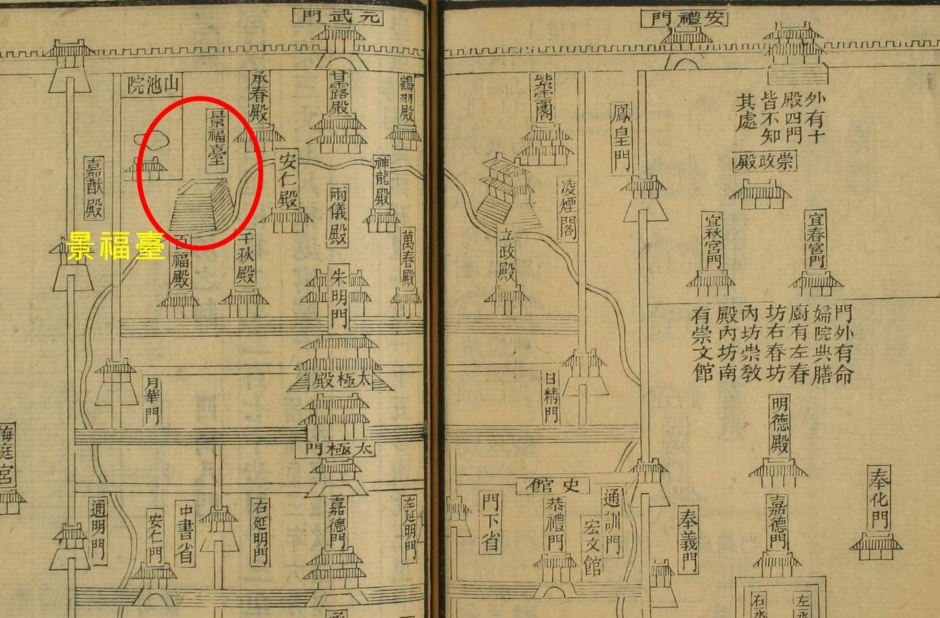 安禮門
外有十
殿四門
皆不知
其處
崇政殿
鳳皇門
紫雲閣
凌煙閣
立政殿
宜春宮門
宜秋宮門
門外有命
婦院典膳
廚有左春
坊右春坊
內坊崇教
殿內坊南
有崇文館
日精門
明德殿
奉化門
嘉德門
奉義門
史館
通訓門
宏文館
恭禮門
門下省
左永
右永
元武門
鶴羽殿
甘露殿
承春殿
山池院
景福臺
神龍殿
安仁殿
兩儀殿
萬春殿
千秋殿
百福殿
嘉猷殿
景福臺
朱明門
太極殿
月華門
太極門
左延明門
嘉德門
右延明門
中書省
安仁門
通明門